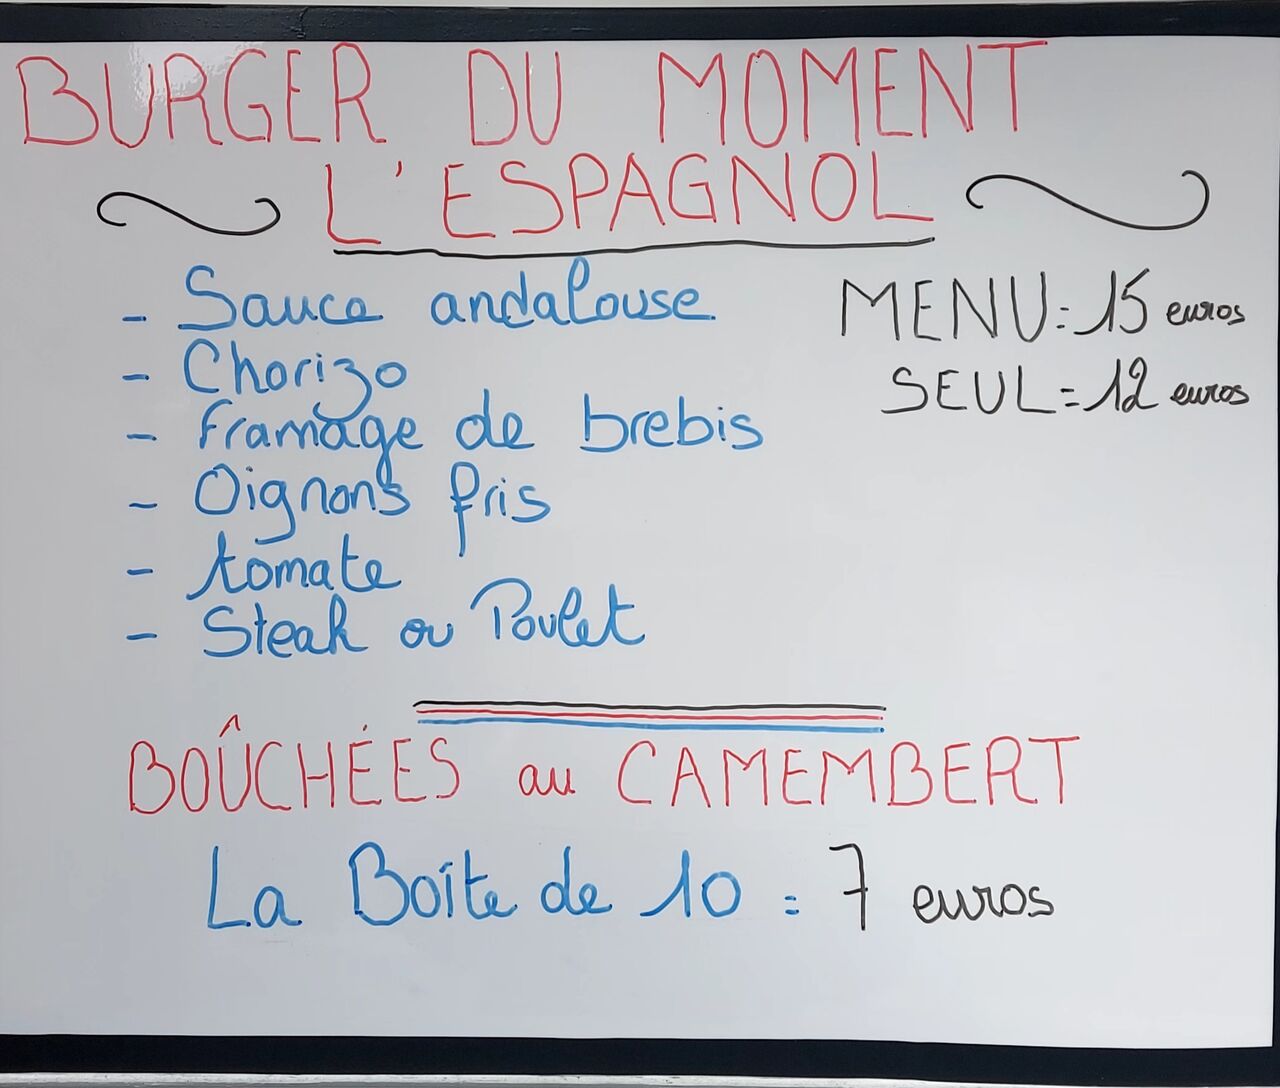 BURGER DU MOMENT
L'ESPAGNOL
- Sauce andalouse
- Chorizo
- Framage de brebis
- Oignons fris
- tomate
- Steak ou Poulet
MENU = 15 euros
SEUL = 12 euros
BOÛCHÉES au CAMEMBERT
La Boîte de 10 = 7 euros